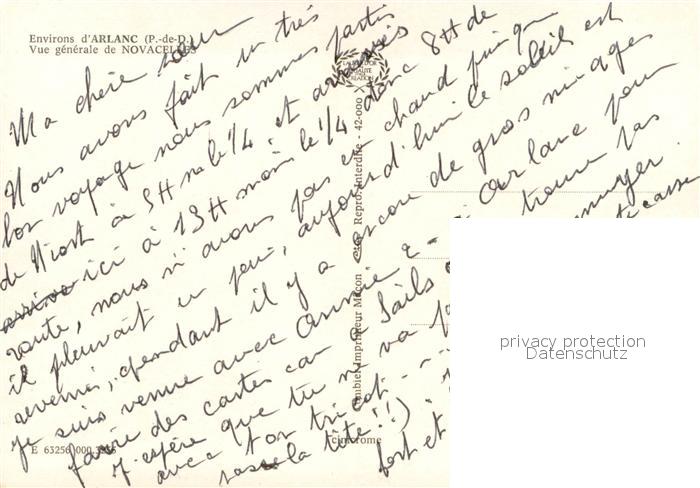 Environs d'ARLANC (P.-de-D.)
Vue générale de NOVACELLES
Ma chère sœur
Nous avons fait un très
bon voyage nous sommes partis
de Niort à 5H ne 1/4 et arrivés
ici à 13H moins le 1/4 donc 8H de
route, nous n'avons pas eu chaud puisque
il pleuvait un peu, aujourd'hui le soleil est
revenu, cependant il y a encore de gros nuages
je suis venue avec Annie à Arlanc pour
faire des cartes car à Sails trouve pas
J'espère que tu ne va p
avec ton tricot ticasse
casse la tête!!)
fort et
Combier Imprimeur Mâcon
Repro. Interdite - 42-000
cimcrome
E 63256.000.
privacy protection
Datenschutz